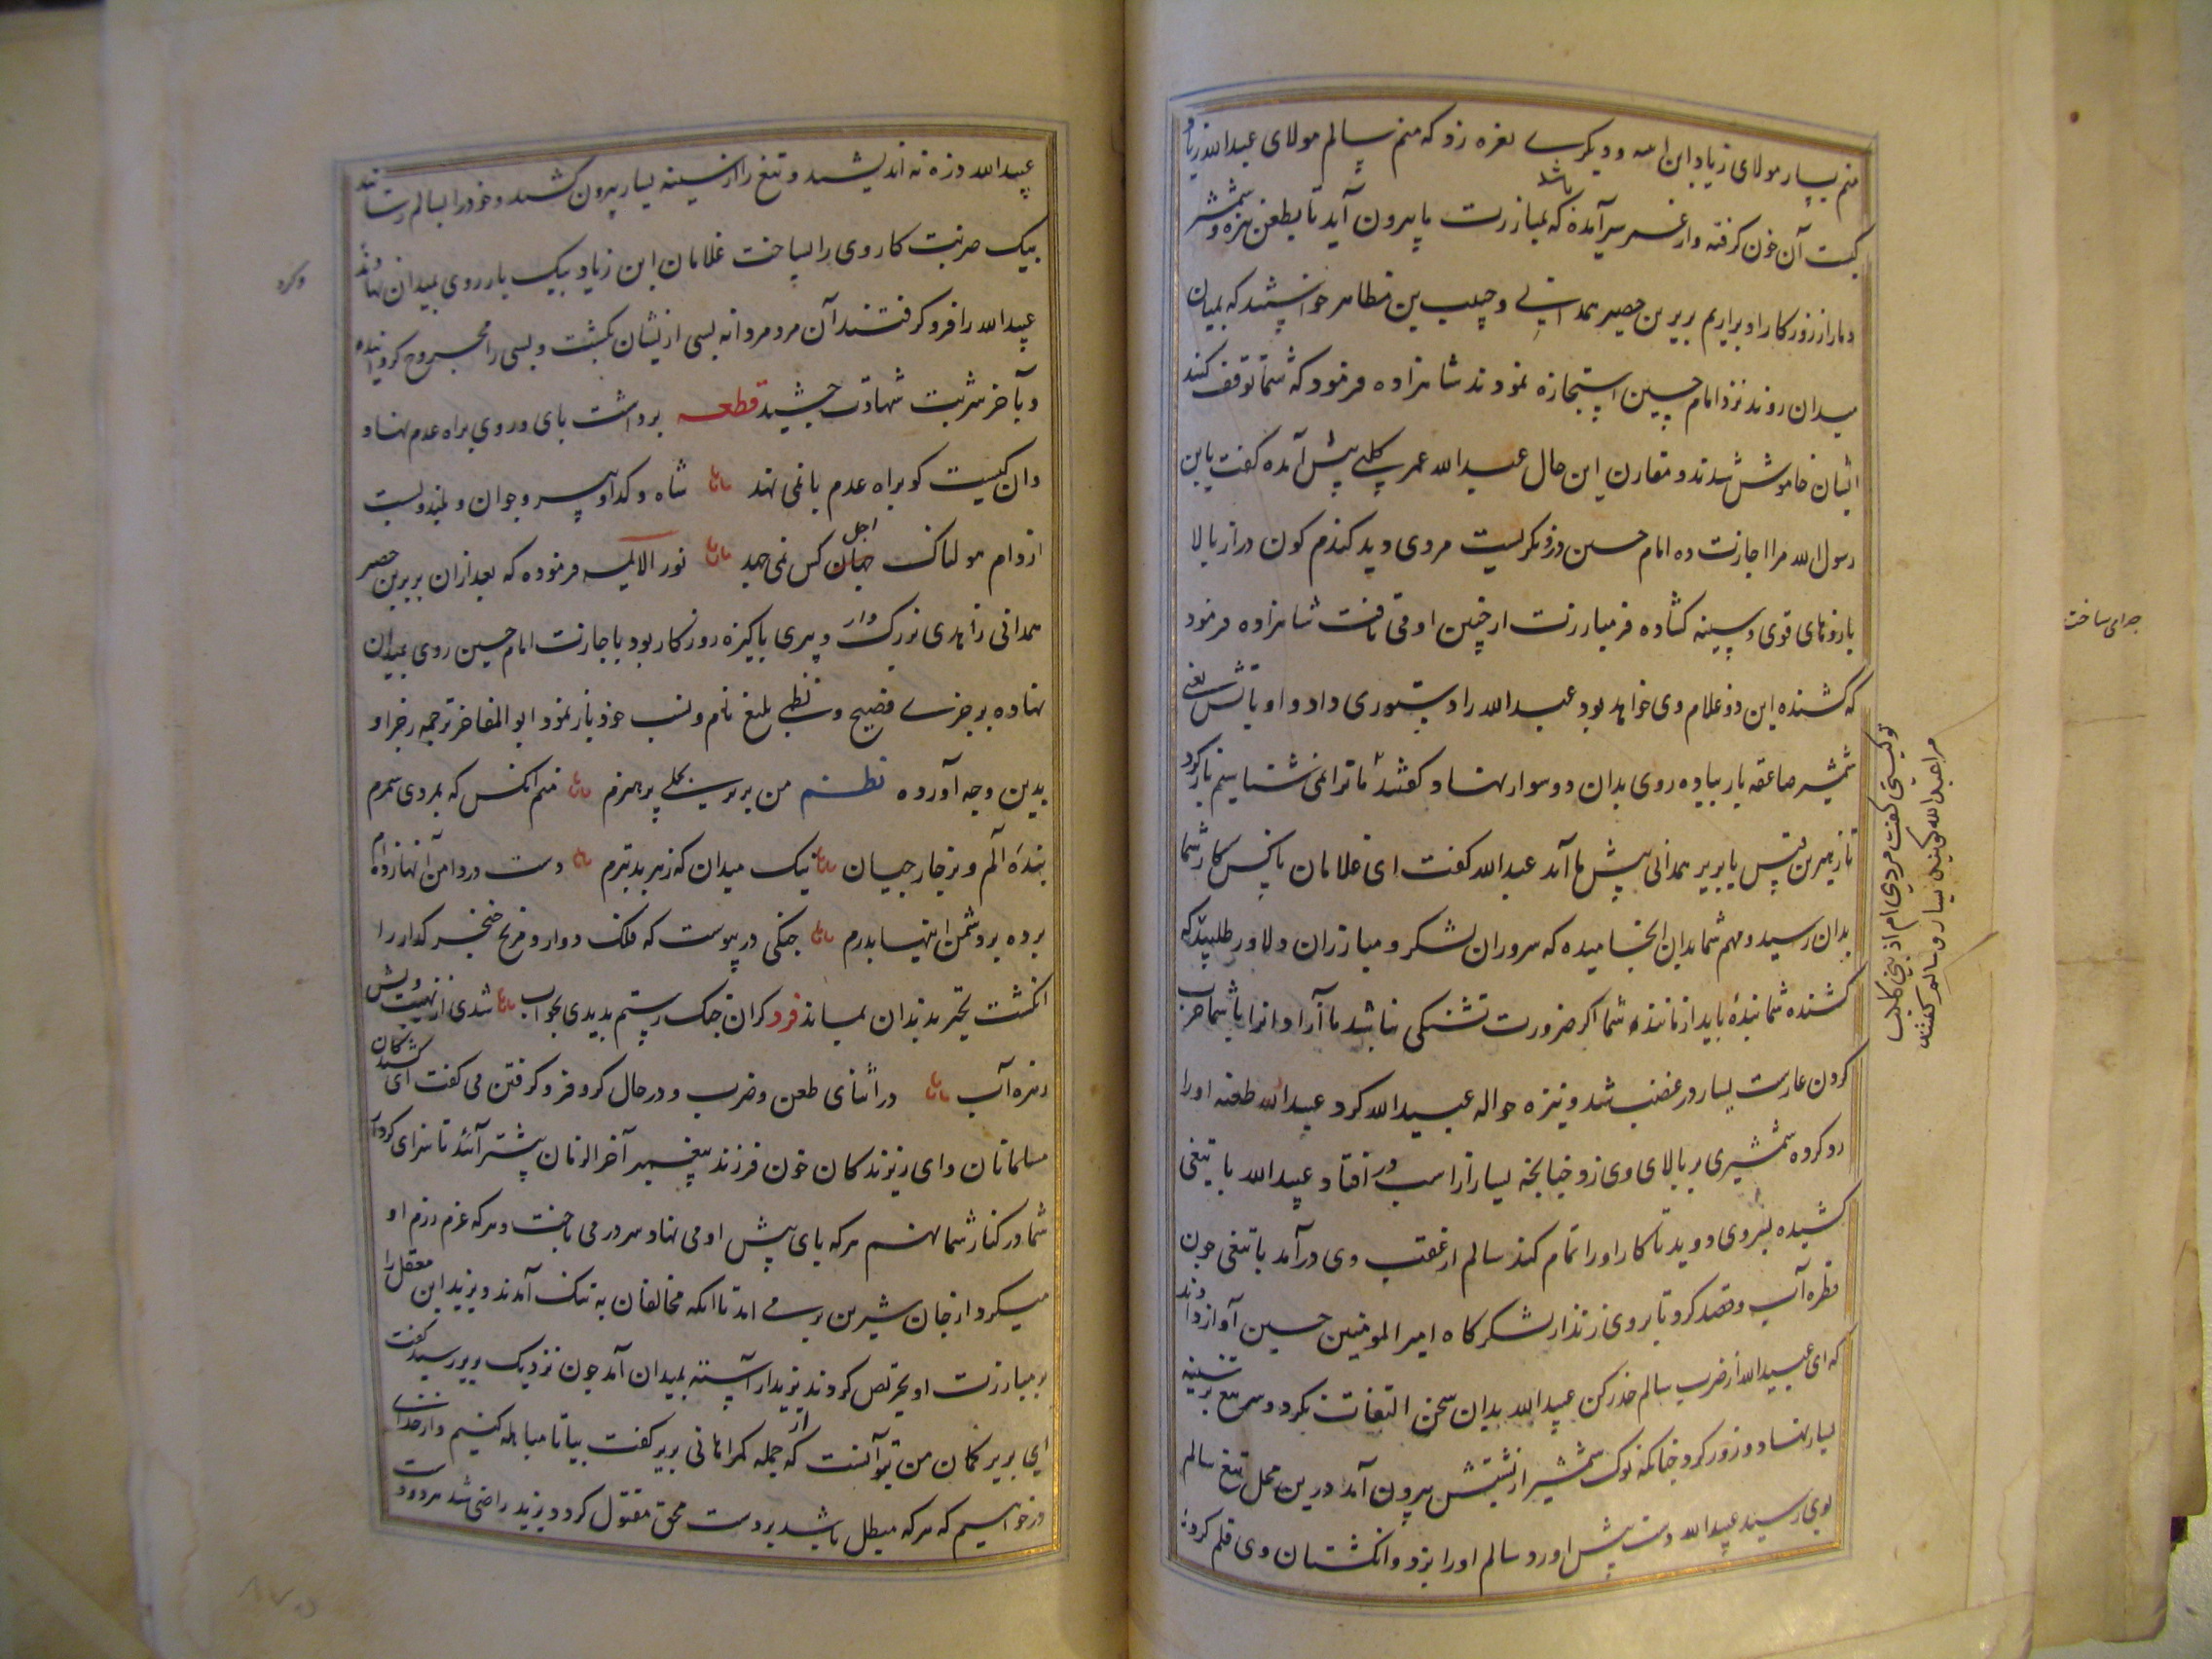 منم یسار مولای زیاد ابن ابیه و دیکرے نعره زد که منم سالم مولای عبیدالله زیاد
کیست آن خون کرفته و از عمر سیر آمده باشد که بمبارزت ما بیرون آید تا بطعن نیزه و شمشیر
دمار از روزکار او براریم بریر بن حصیر همدانی و حبیب بن مظاهر خواستند که بمیان
میدان روند نزد امام حسین استجازه نمودند شاهزاده فرمود که شما توقف کنید
ایشان خاموش شدند و مقارن این حال عبیدالله عمر کلبی پیش آمده کفت یابن
رسول الله مرا اجازت ده امام حسین درو نکریست مردی دید کندم کون دراز بالا
بازوهای قوی و سینه کشاده فر مبارزت از جبین او می تافت شاهزاده فرمود
که کشنده این دو غلام وی خواهد بود عبیدالله را دستوری داد و او با تش یعنی
شمشیر صاعقه بار پیاده روی بدان دو سوار نهاد کفتند ما ترا نمی شناسیم باز کرد
تا زهیر بن قیس یا بریر همدانی پیش ما آید عبدالله کفت ای غلامان ناکس کار شما
بدان رسید و مهم شما بدان انجامیده که سروران لشکر و مبارزان دلاور طلبید که
کشنده شما بنده باید از مانند شما اکر ضرورت تشنکی نباشد ما آزاد انرا با شما حرب
کردن عارست یسار در غضب شد و نیزه حواله عبیدالله کرد عبیدالله طعنه او را
رد کرده شمشیری بر بالای وی زد چنانچه یسار از اسب در افتاد عبیدالله با تیغی
کشیده بسروی دوید تا کار او را تمام کند سالم از عقب وی درآمد با تیغی چون
قطره آب و قصد کرد تا بروی زند از لشکرکاه امیر المومنین حسین آواز دادند
که ای عبیدالله از ضرب سالم حذر کن عبیدالله بدان سخن التفات نکرد و سر تیغ بر سینه
یسار نهاد و زور کرد چنانکه نوک شمشیر از پشتش بیرون آمد درین محل تیغ سالم
بوی رسید عبیدالله دست پیش آورد و سالم او را بزد و انکشتان وی قلم کرد
تو کیستی کفت مردی ام از بنی کلب
مرا عبدالله کویند یسار و سالم کفتند
جدای ساخت
عبیدالله ذره نه اندیشید و تیغ را از سینه یسار بیرون کشید و خود را بسالم رسانید
بیک ضربت کار وی را بساخت غلامان ابن زیاد بیک بار روی بمیدان نهادند
عبیدالله را فرو کرفتند آن مرد مردانه بسی از یشان بکشت و بسی را مجروح کردانیده
و بآخر شربت شهادت چشید قطعه برداشت بای و روی براه عدم نهاد
وان کیست کو براه عدم پا نمی نهد شاه و کدا و پیر و جوان و بلند و پست
از دام هولناک اجل جان کس نمی جهد نور الائمه فرموده که بعد ازان بریر بن حصیر
همدانی زاهدی بزرک وار و پیری پاکیزه روزکار بود با جازت امام حسین روی بمیدان
نهاده برجزے فصیح و نظمی بلیغ نام و نسب خود باز نمود ابو المفاخر ترجمه رجز او
بدین وجه آورده نظم من بریر یکی پر هنرم منم انکس که بمردی سمرم
بنده آلم و بزخارجیان نیک میدان که ز هر بد بترم دست در دامن آنها زده ام
برده بر دشمن اینها بدرم جنکی در پیوست که فلک دوار و مریخ خنجر کذار را
انکشت تحیر بدندان بماند فرد کران جنک رستم بدیدی بخواب شدی از نهیب ویش
زهره آب در اثنای طعن و ضرب و در حال کر و فر و کرفتن می کفت ای کشندکان
مسلمانان و ای ریزندکان خون فرزند پیغمبر آخر الزمان پیشتر آئید تا سزای کردار
شما در کنار شما نهم هر که پای پیش او می نهاد سر در می باخت و هر که عزم رزم او
میکرد از جان شیرین بر می امد تا انکه مخالفان به تنک آمدند و یزید ابن معقل را
بر مبارزت او تحریص کردند یزید آراسته بمیدان آمد چون نزدیک بریر رسید کفت
ای بریر کمان من بتو آنست که از جمله کمراهانی بریر کفت بیا تا مباهله کنیم و از خدای
درخواهیم که هر که مبطل باشد بر دست محق مقتول کردد یزید راضی شد هر دو دست